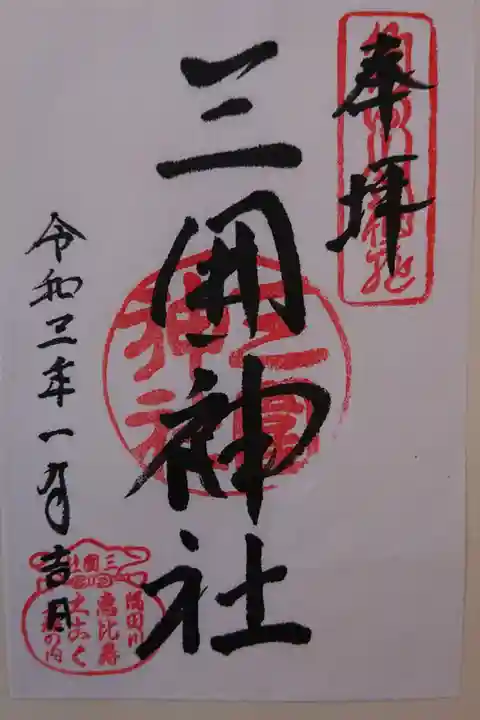 奉拝
三囲神社
令和三年一月吉日
三囲神社
三囲社
隅田川
恵比寿
大こく